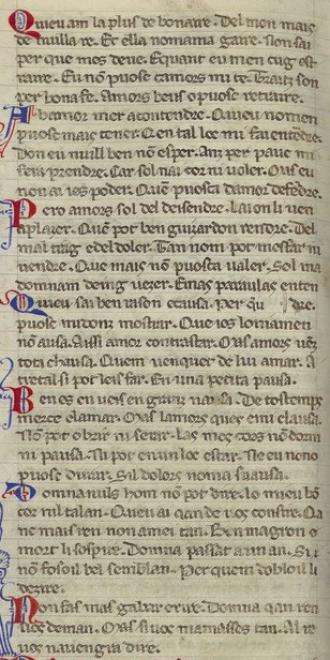 Queu am la plus de bonaire. Del mon mais
de nulla re. Et ella nomama gaire. Non sai
per que mes deve. Equant eu men cug est
raire. Eu nō puosc camors mi te. Traitz son
per bona fe. Amors beus o puosc retraire.
Ab amor mer acontendre. Queu nomen
puosc mais tener. Qen tal loc mi fai entēdre.
Don eu nuill ben nō esper. Anz per pauc mi
feira prendre. Car sol nai cor ni voler. Mas eu
non ai ies poder. Quē puosca damor defēdre.
Pero amors sol deiscendre. Lai on li ven
aplaçer. Quē pot ben guizardon rendre. Del
mal trag e del doler. Tan nom pot mostrar ni
uendre. Que mais nō puosca ualer. Sol ma
domnam deing uezer. Emas paraulas enten
Queu sai ben rason ecausa. Per qu dre.
puosc midonz mostrar. Que ies loniamen
nō ausa. Aissi amor contrastar. Mas amors uēz
tota chausa. Quem venquer de lui amar. A
tretal si pot leis far. En una petita pausa.
Ben es en ueis en gran nausa. De tostemps
merce clamar. Mas lamors ques emi clausa.
Nō pot obrir ni serar. Las mos cors nō dorm
ni pausa. Ni pot en un loc estar. Ne eu nono
puosc durar. Sil dolors noma suausa.
Domna nuls hom nō pot dire. Lo meu bō
cor nil talan. Queu ai qan de vos consire. Qā
ne mais ren non amei tan. Ben magron o
mort li sospire. Domna passat a un an. Si
nō fos un bel semblan. Per quem doblon li
dezire.
Non fas mas gabar erire. Domna qan ren
uos deman. Mas si uos mamasses tan. Al re
uos nauengra dire.